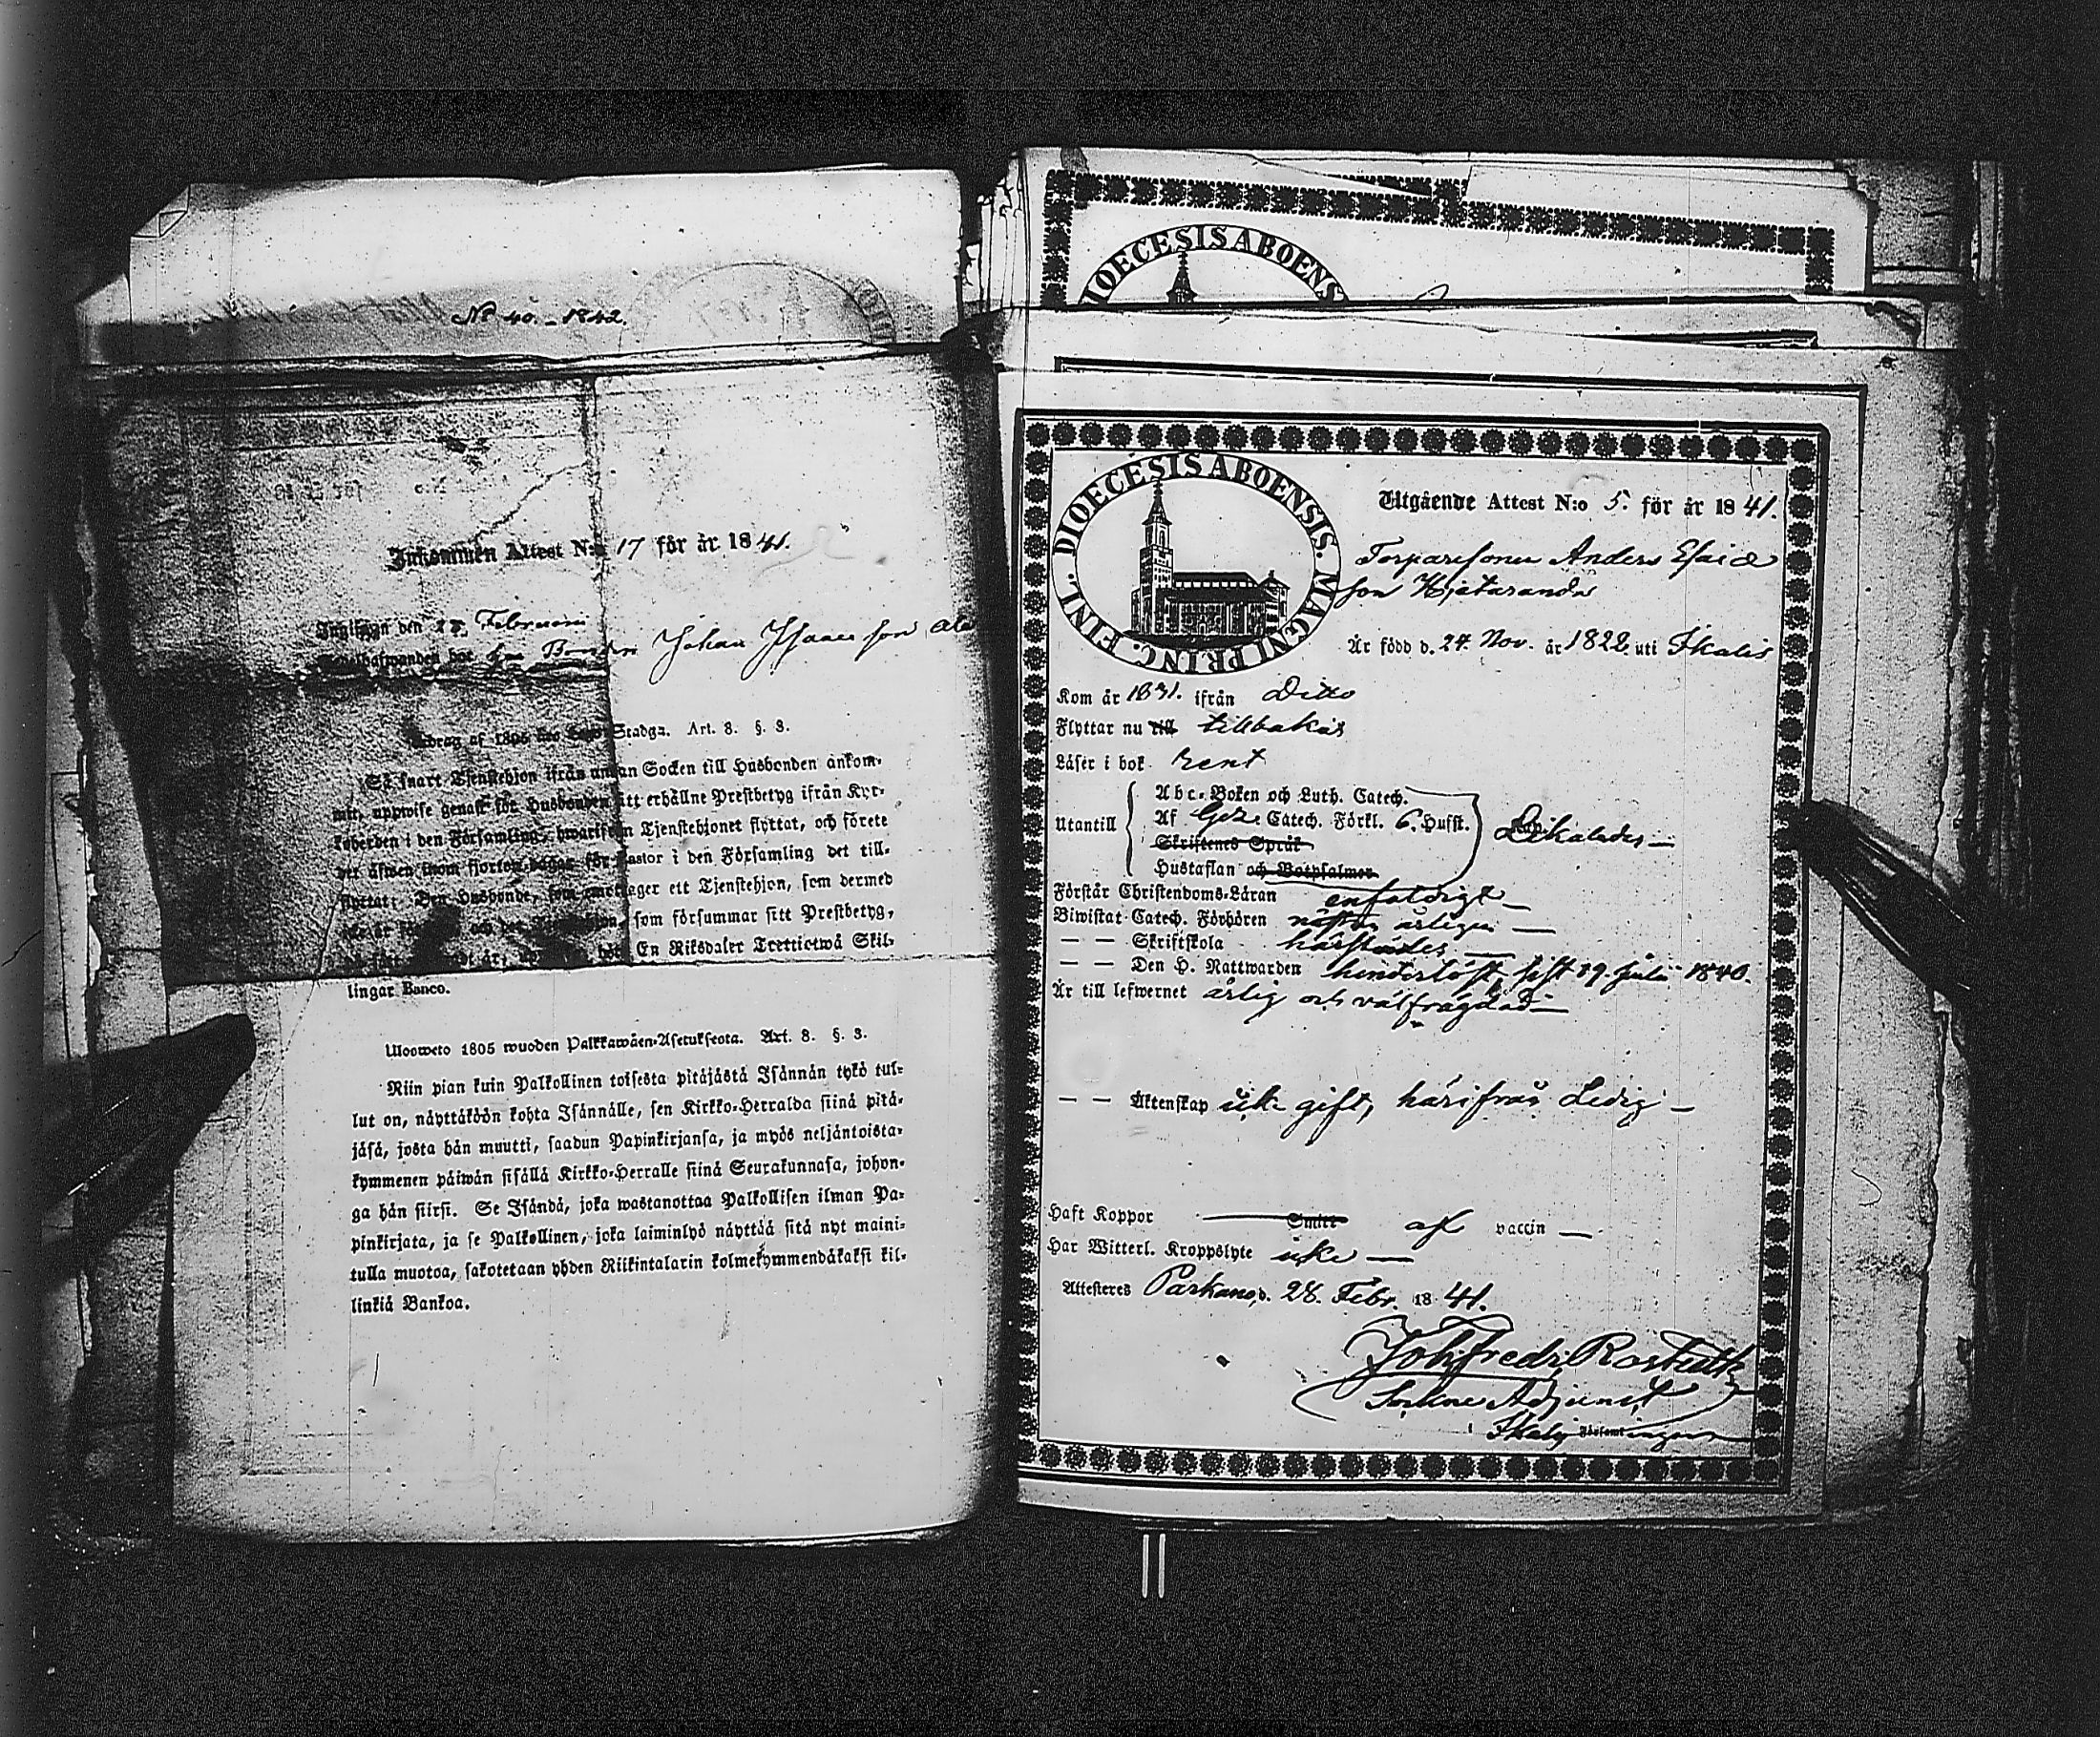 No 40. – 1842.
Inkommen Attest N:o 17 för år 1841.
Ingifwen den 27. Februari
hos Bonden Johan Isaacsson Ala
Utdrag af 1805 års Lego-Stadga. Art. 8. §. 3.
Så snart Tjenstehjon ifrån annan Socken till Husbonden ankom-
mit, uppwise genast för Husbonden sitt erhållne Prestbetyg ifrån Kyr-
koherden i den Församling, hwarifrån Tjenstehjonet flyttat, och förete
det äfwen inom fjorton dagar för Pastor i den Församling det till-
flyttat; Den Husbonde, som emottager ett Tjenstehjon, som dermed
och det Tjenstehjon, som försummar sitt Prestbetyg,
år, böte En Riksdaler Trettiotwå Skil-
lingar Banco.
Uloosweto 1805 wuoden Palkkawäen-Asetuksesta. Art. 8. §. 3.
Niin pian kuin Palkollinen toisesta pitäjästä Isännän tykö tul-
lut on, näyttäköön kohta Isännälle, sen Kirkko-Herralda siinä pitä-
jäsä, josta hän muutti, saadun Papinkirjansa, ja myös neljäntoista-
kymmenen päiwän sisällä Kirkko-Herralle siinä Seurakunnasa, johon-
ga hän siirsi. Se Isändä, joka wastanottaa Palkollisen ilman Pa-
pinkirjata, ja se Palkollinen, joka laiminlyö näyttää sitä nyt maini-
tulla muotoa, sakotetaan yhden Riikintalarin kolmekymmendäkaksi kil-
linkiä Bankoa.
DIOECESIS ABOENS
DIOECESIS ABOENSIS. MAGNI PRINC. FINL.
Utgående Attest N:o 5. för år 1841.
Torparesonen Anders Esaias
son Hjetaranda
Är född d. 24. Nov. år 1822. uti Ikalis
Kom år 1831. ifrån Ditto
Flyttar nu till tillbakas
Läser i bok rent
Utantill
Abc-Boken och Luth. Catech.
Af Gez. Catech. Förkl. 6. Hufst.
Skriftenes Språk
Hustaflan och Botpsalmer
Likaledes
Förstår Christendoms-Läran enfaldigt
Biwistat Catech. Förhören nästan årligen
— — Skriftskola härstädes
— — Den H. Nattwarden hinderlöst, sist 19 Juli 1840.
Är till lefwernet ärlig och välfrägdad
— — Äktenskap icke gift, härifrån Ledig
Haft Koppor Smitt af vaccin
Har Witterl. Kroppslyte icke
Attesteres Parkano, d. 28. Febr. 1841.
Joh. Fredr. Rostedt
Sockne Adjunct
i Ikalis Församlingen